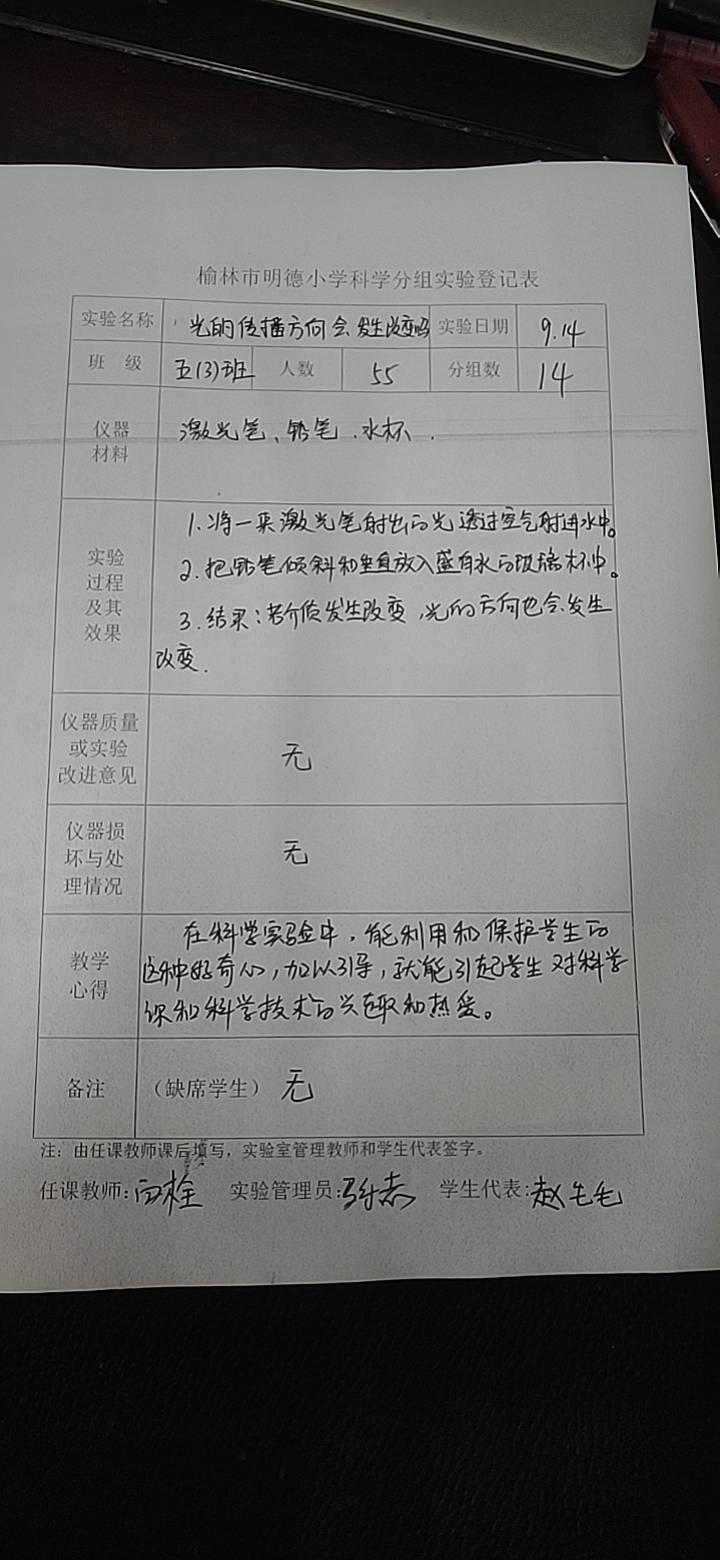 榆林市明德小学科学分组实验登记表
实验名称 光的传播方向会发生改变吗 实验日期 9.14
班 级 五(3)班 人数 55 分组数 14
仪器
材料
激光笔、铅笔、水杯.
实验
过程
及其
效果
1.将一束激光笔射出的光透过空气射进水中。
2.把铅笔倾斜和垂直放入盛有水的玻璃杯中。
3.结果:若介质发生改变,光的方向也会发生
改变.
仪器质量
或实验
改进意见
无
仪器损
坏与处
理情况
无
教学
心得
在科学实验中,能利用和保护学生的
这种好奇心,加以引导,就能引起学生对科学
课和科学技术的兴趣和热爱。
备注 (缺席学生) 无
注:由任课教师课后填写,实验室管理教师和学生代表签字。
任课教师: 实验管理员: 学生代表:赵